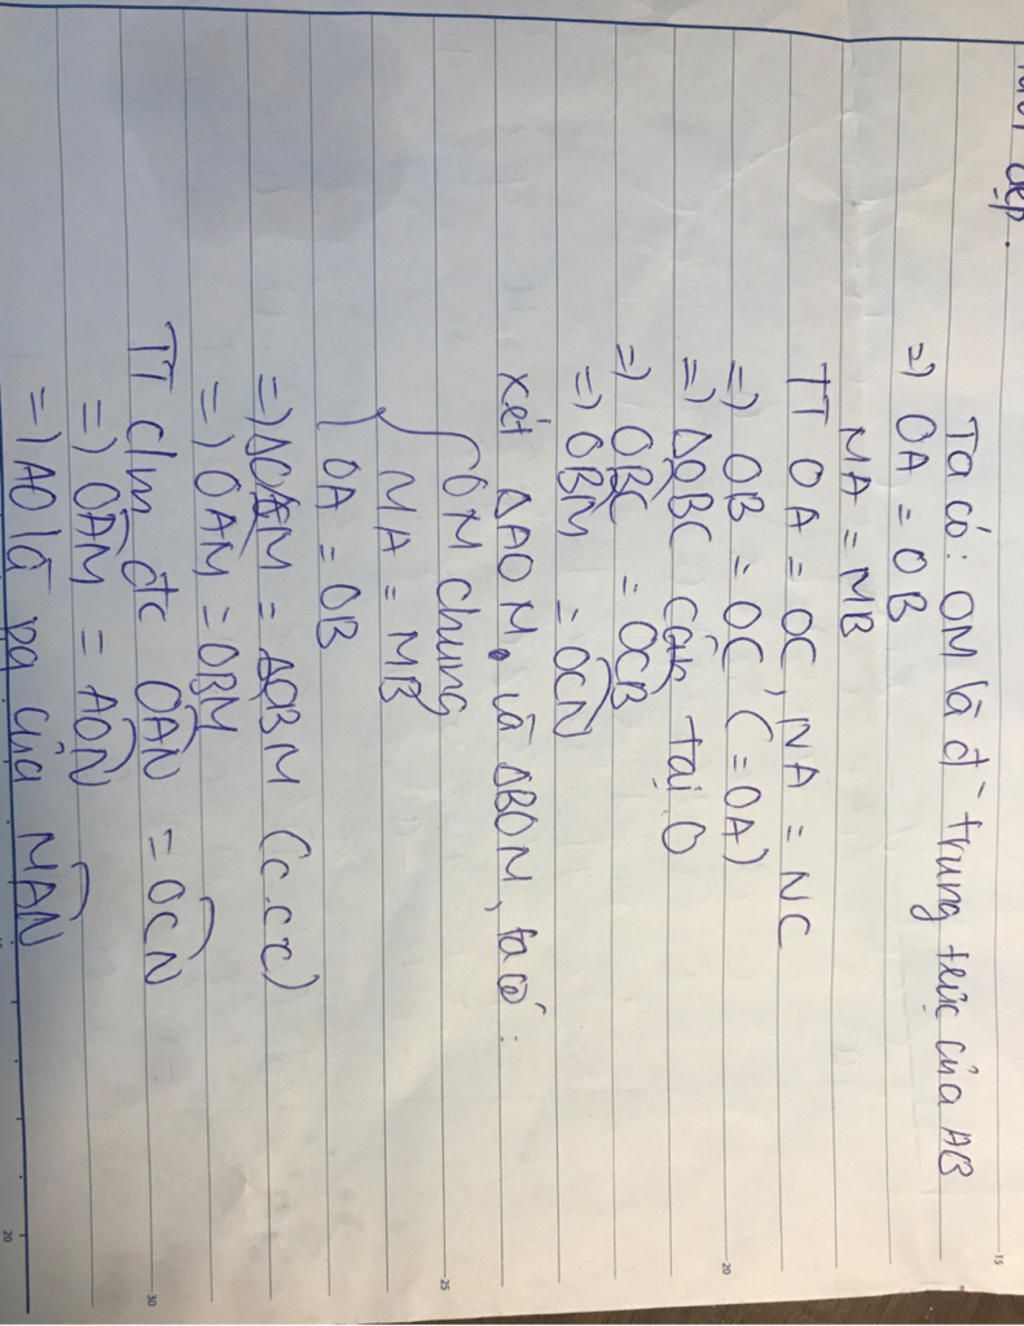 đẹp.
Ta có: OM là đ trung trực của AB
=> OA = OB
MA = MB
TT OA = OC, NA = NC
=> OB = OC (=OA)
=> ΔOBC cân tại O
=> OBC = OCB
=> OBM = OCN
Xét ΔAOM và ΔBOM, ta có:
OM chung
MA = MB
OA = OB
=> ΔOAM = ΔOBM (c.c.c)
=> OAM = OBM
TT c/m đc OAN = OCN
=> OAM = AON
=> AO là pg của MAN
15
20
25
30
20